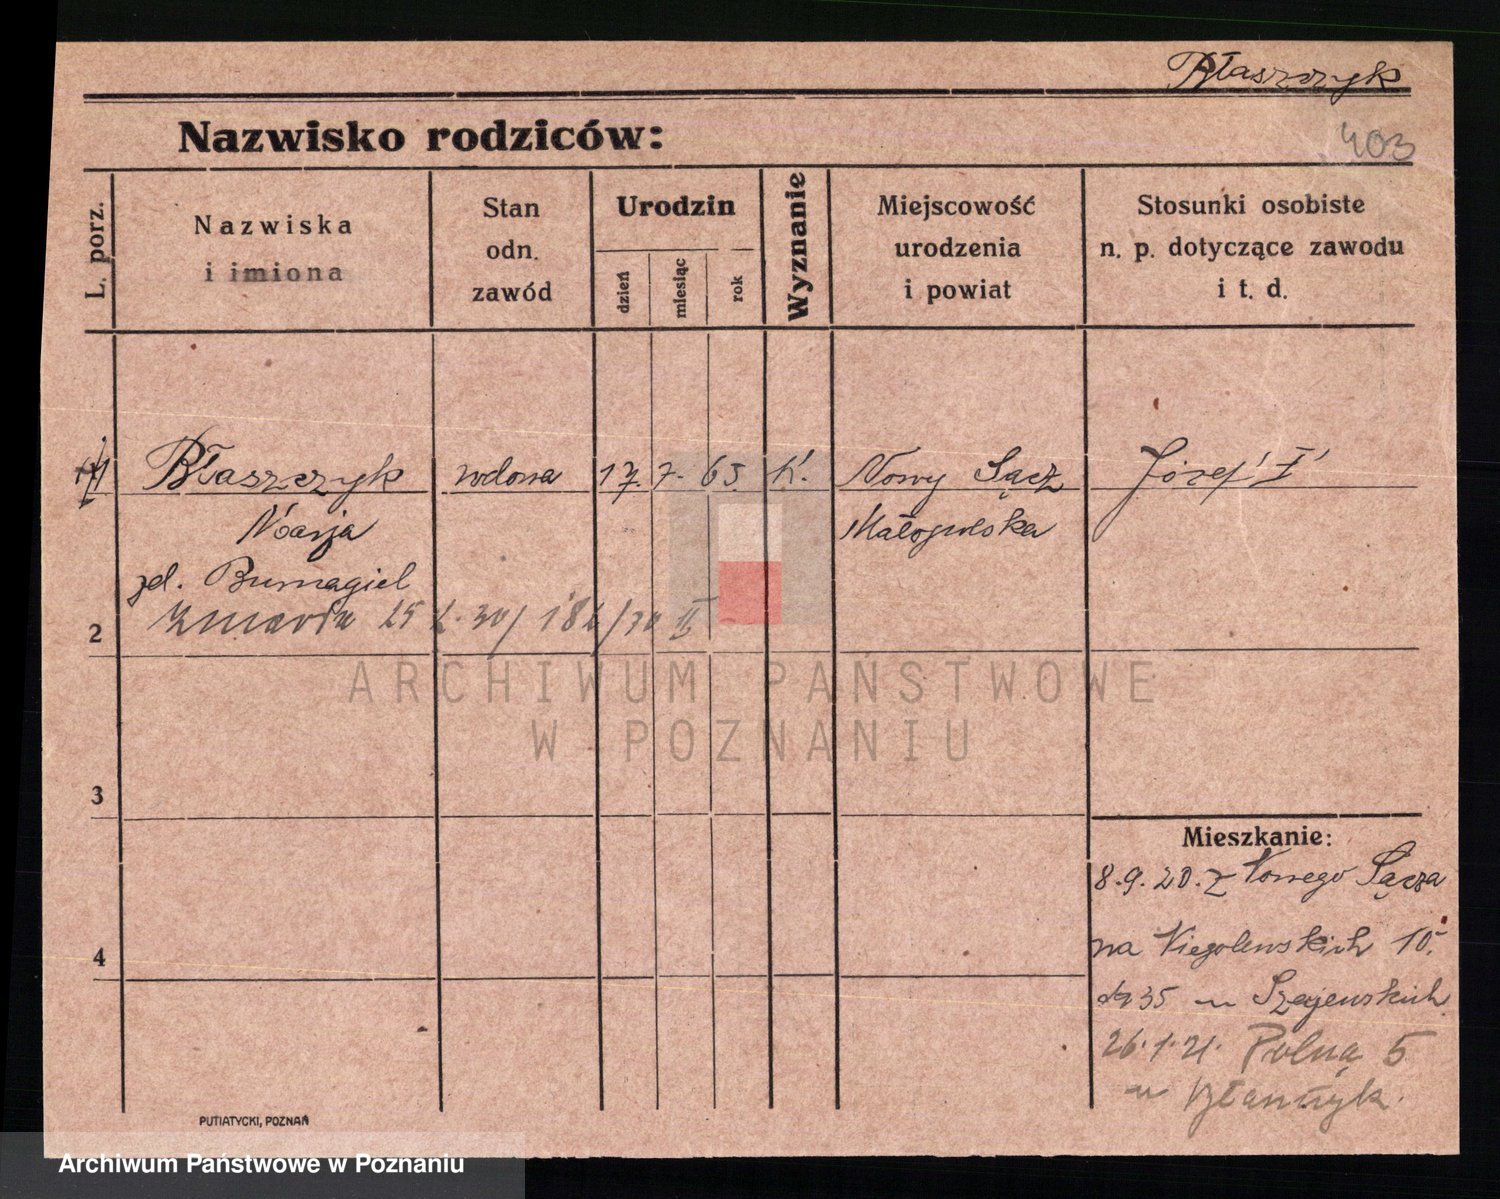 Błaszczyk
403
Nazwisko rodziców:
L. porz.
Nazwiska
i imiona
Stan
odn.
zawód
Urodzin
dzień
miesiąc
rok
Wyznanie
Miejscowość
urodzenia
i powiat
Stosunki osobiste
n. p. dotyczące zawodu
i t. d.
1 Błaszczyk wdowa 17. 7. 63 K. Nowy Sącz Józef I
Małopolska
Bumagiel
2 zmarła 25 30/ 182/30 II
ARCHIWUM PAŃSTWOWE
W POZNANIU
3
Mieszkanie:
8.9.20. z Nowego Sącza
4
na 10.
35 u Szajewskich
26.1.21. Polna 5
u Błaszczyk.
PUTIATYCKI, POZNAŃ
Archiwum Państwowe w Poznaniu